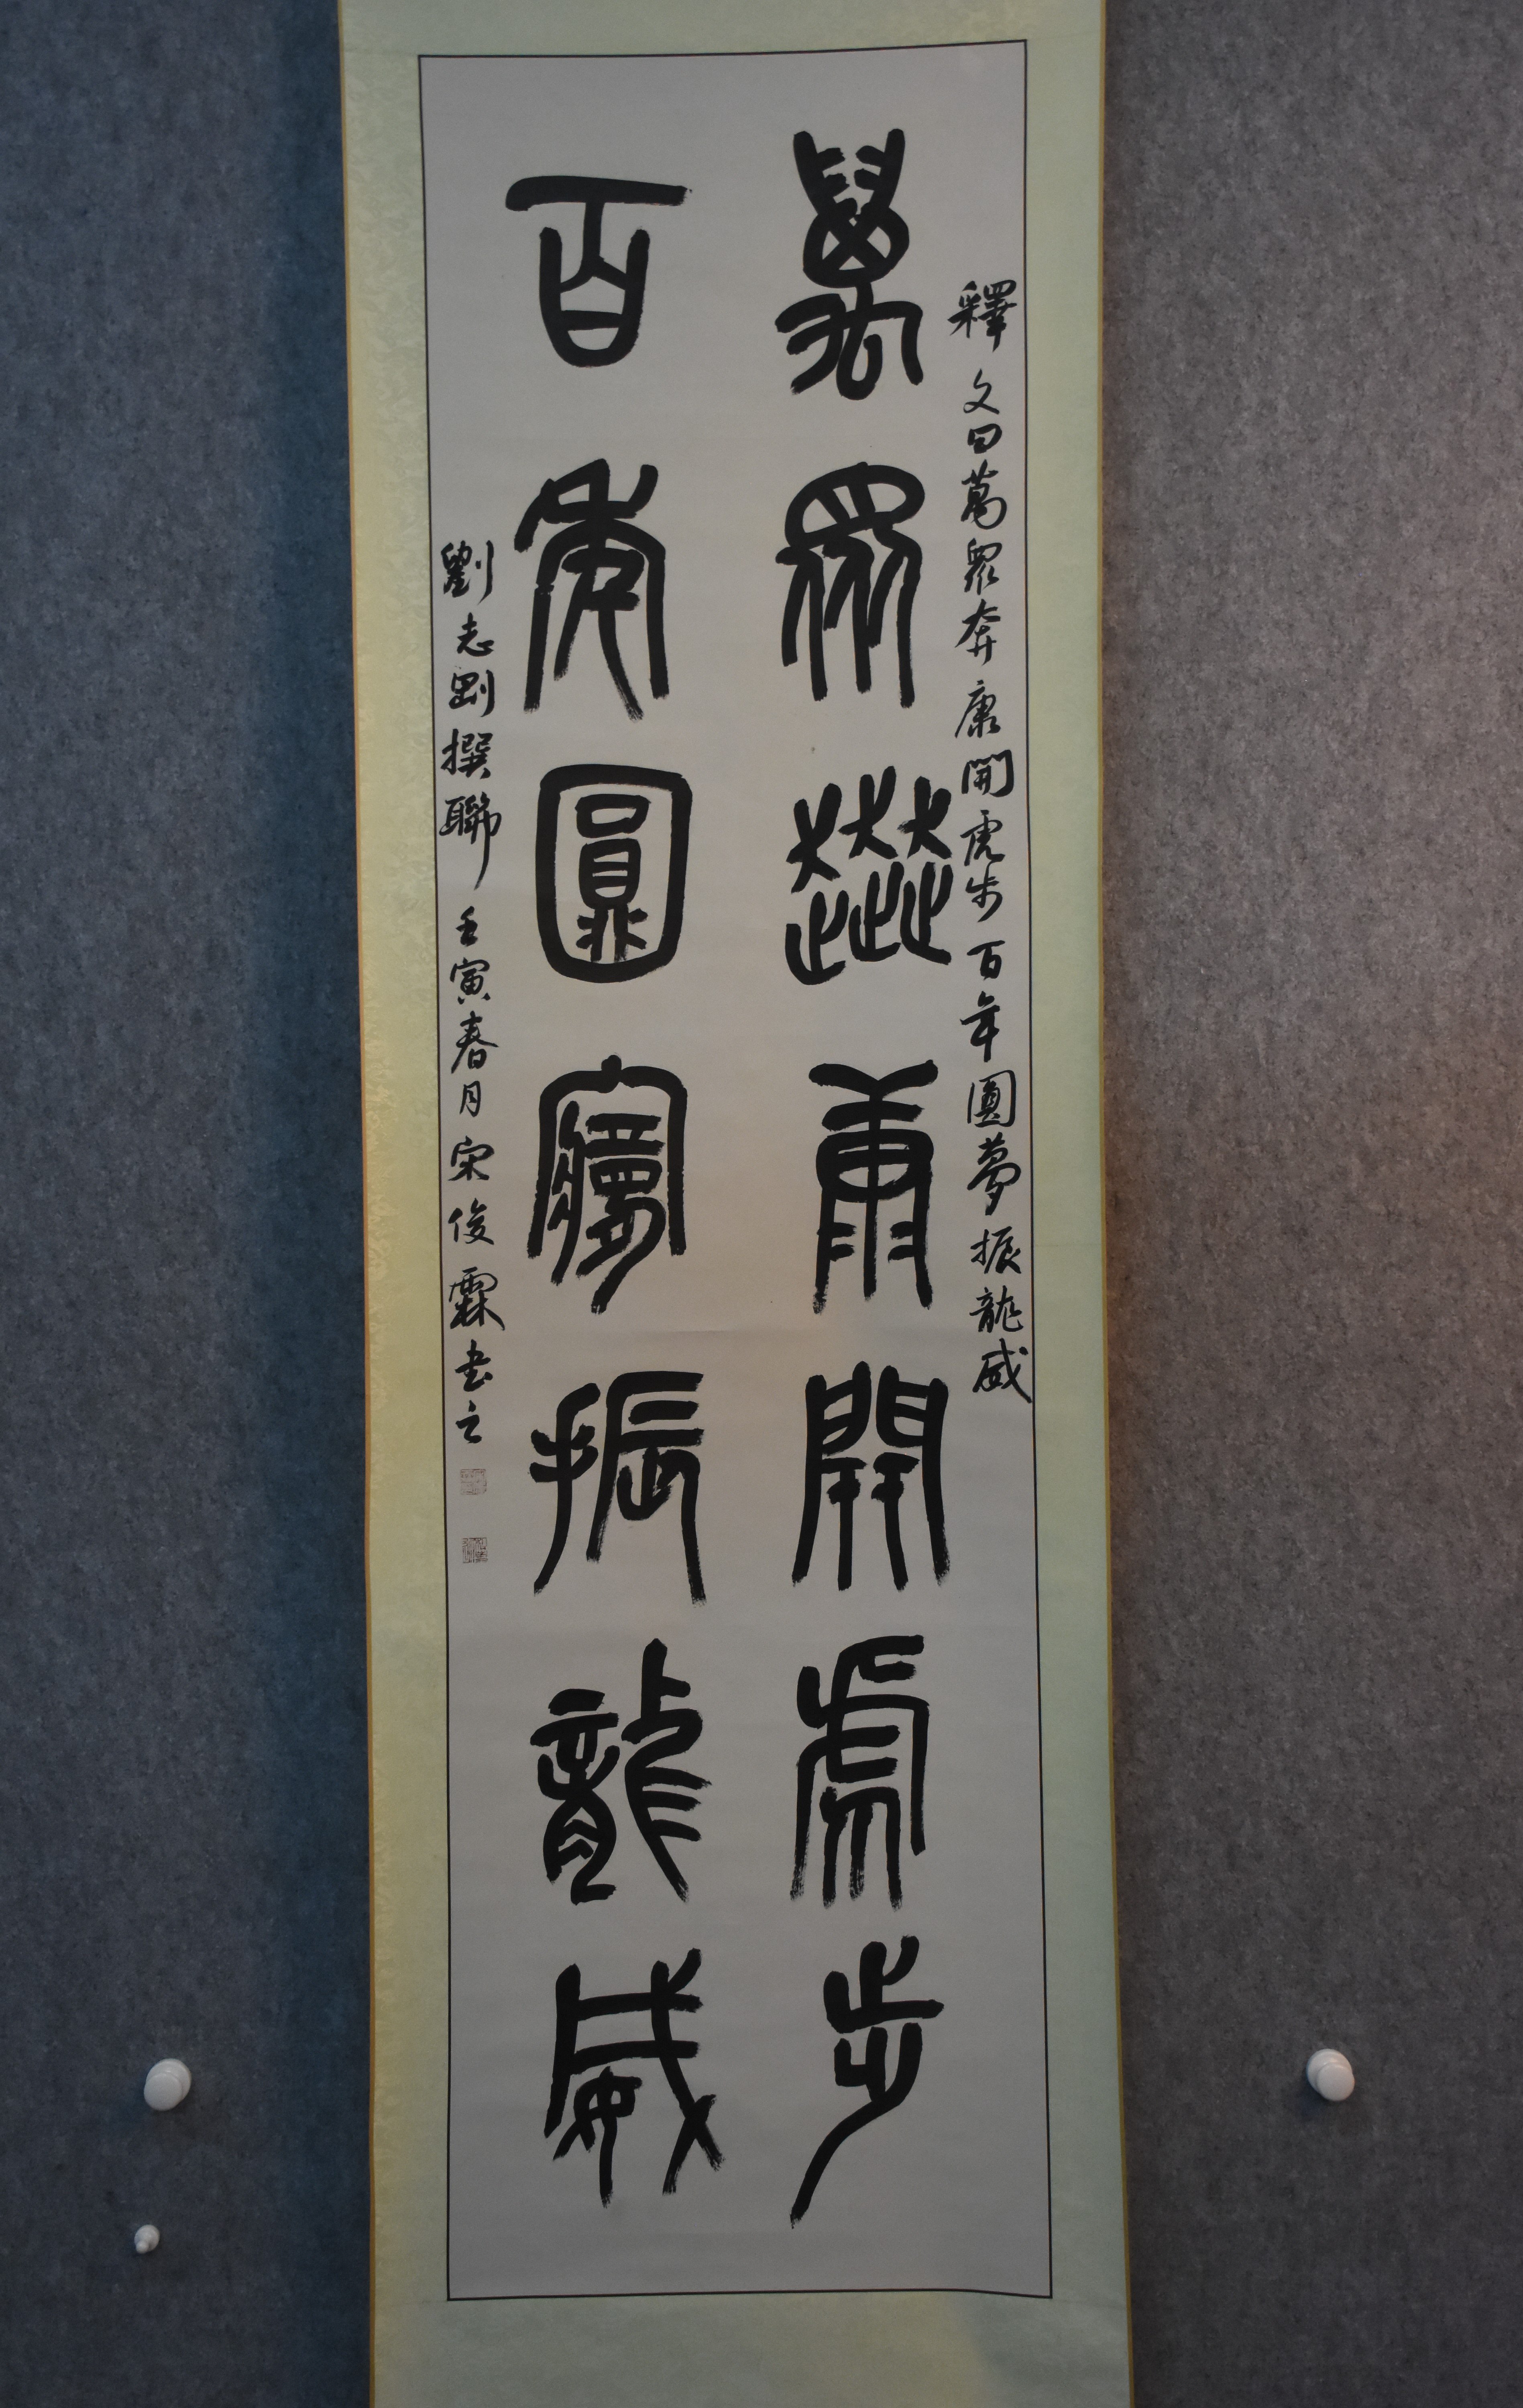 釋文曰萬眾奔康開虎步百年圓夢振龍威
萬眾奔康開虎步
百年圓夢振龍威
劉志剛撰聯壬寅春月宋俊霖書之